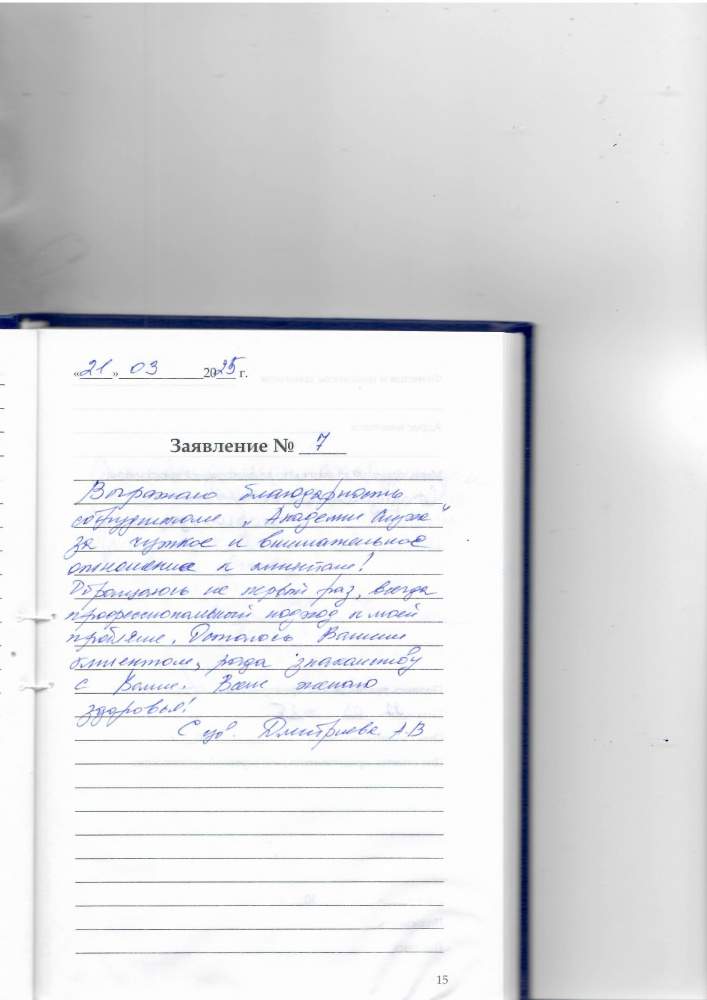 «21» 03 2025 г.
Заявление № 7
Выражаю благодарность
сотрудникам „Академии Слуха"
за чуткое и внимательное
отношение к клиентам!
Обращаюсь не первый раз, всегда
профессиональный подход к моей
проблеме. Осталось Вашим
клиентом, рада знакомству
с Вами. Всем желаю
здоровья!
С ув. Дмитриева А.В
15